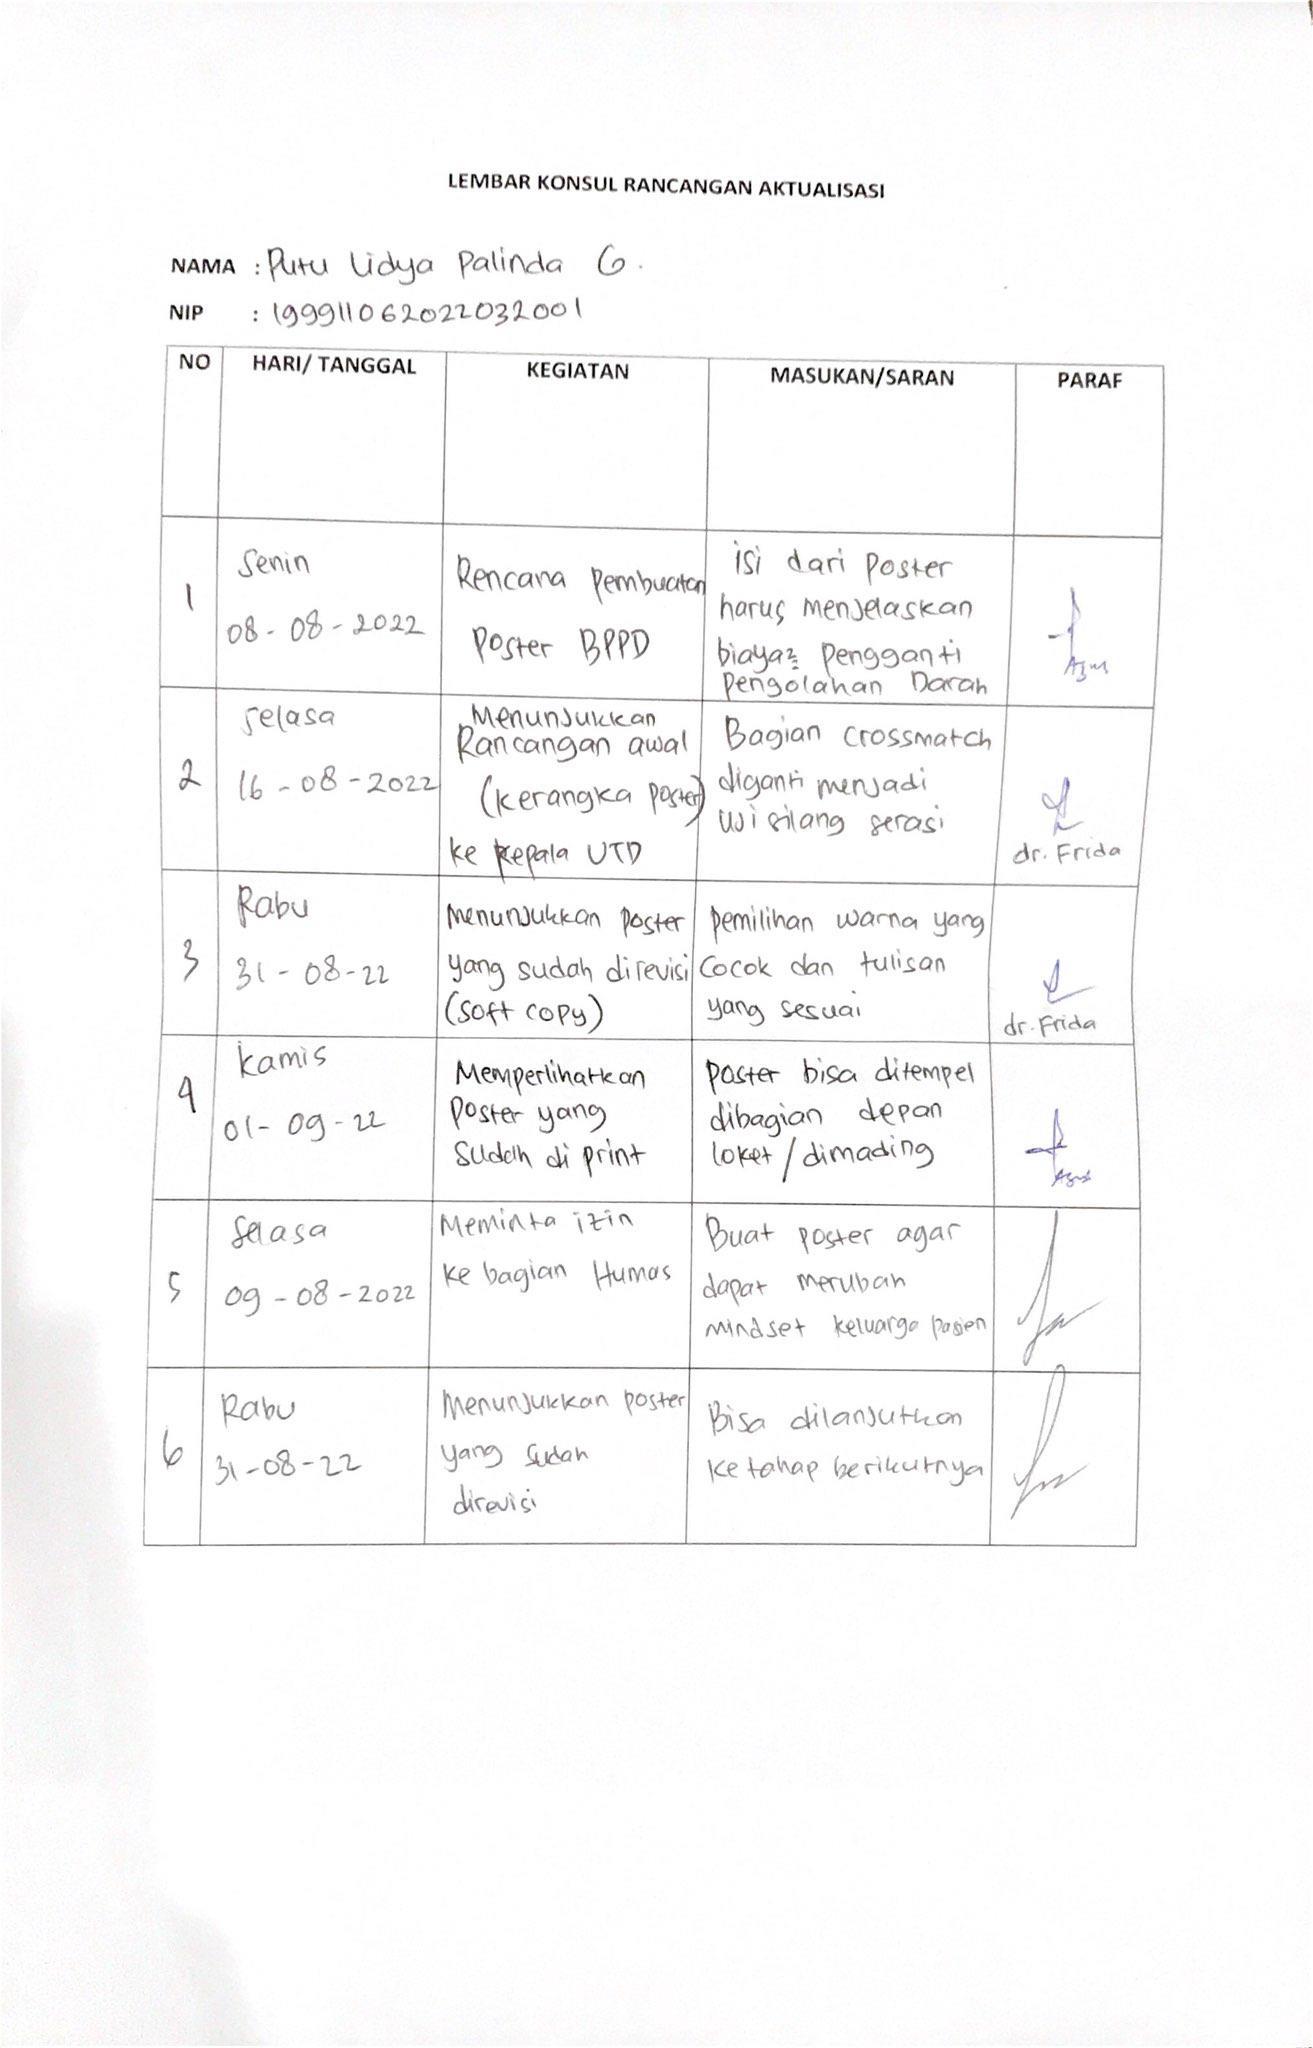 LEMBAR KONSUL RANCANGAN AKTUALISASI
NAMA : Putu Lidya Palinda G.
NIP : 199911062022032001
NO HARI/ TANGGAL KEGIATAN MASUKAN/SARAN PARAF
1
Senin
08-08-2022
Rencana Pembuatan
Poster BPPD
isi dari Poster
harus menjelaskan
biaya2 pengganti
Pengolahan Darah
Agus
2
Selasa
16-08-2022
Menunjukkan
Rancangan awal
(kerangka poster)
ke kepala UTD
Bagian crossmatch
diganti menjadi
uji silang serasi
dr. Frida
3
Rabu
31-08-22
Menunjukkan poster
yang sudah direvisi
(soft copy)
pemilihan warna yang
cocok dan tulisan
yang sesuai
dr. Frida
4
Kamis
01-09-22
Memperlihatkan
Poster yang
sudah di print
poster bisa ditempel
dibagian depan
loket/dimading
Agus
5
Selasa
09-08-2022
Meminta izin
ke bagian Humas
Buat poster agar
dapat merubah
mindset keluarga pasien
6
Rabu
31-08-22
Menunjukkan poster
yang sudah
direvisi
Bisa dilanjutkan
ke tahap berikutnya